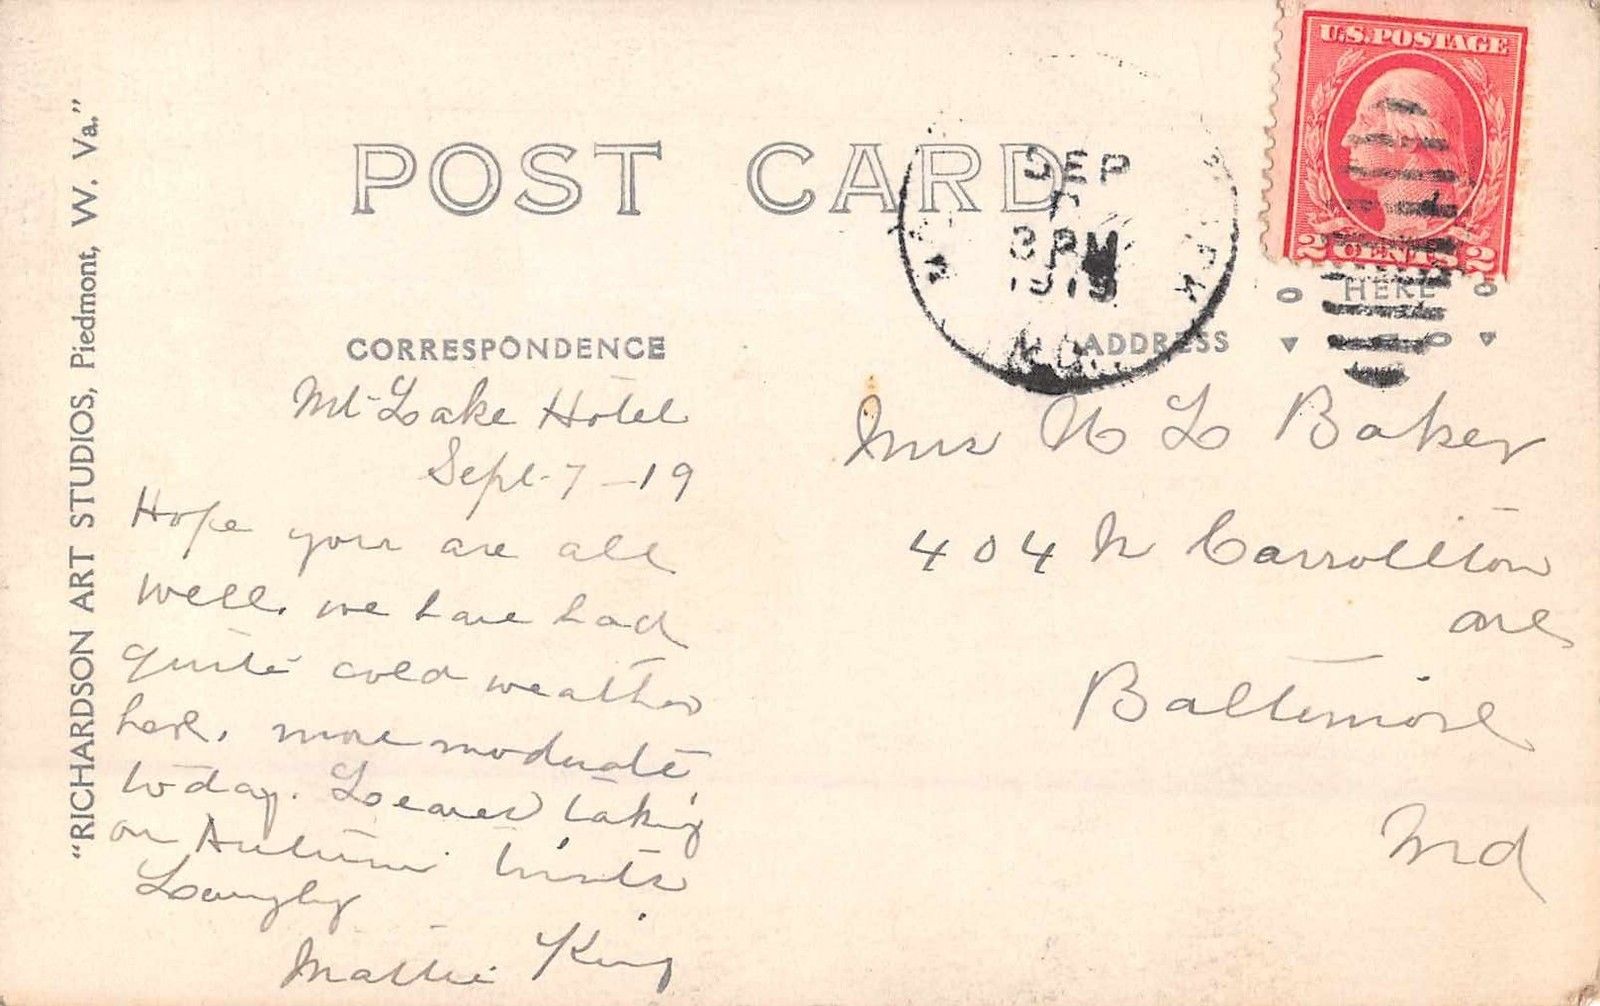 "RICHARDSON ART STUDIOS, Piedmont, W. Va."
POST CARD
U.S. POSTAGE
2 CENTS 2
SEP
3 PM
1919
HERE
CORRESPONDENCE
ADDRESS
Mt-Lake Hotel
Sept-7-19
Hope your are all
well. we have had
quite cold weather
here. more moderate
today. Leaves taking
on Autumn tints
Lovingly
Mattie King
Mrs L Baker
404 N Carrollton
ave
Baltimore
Md